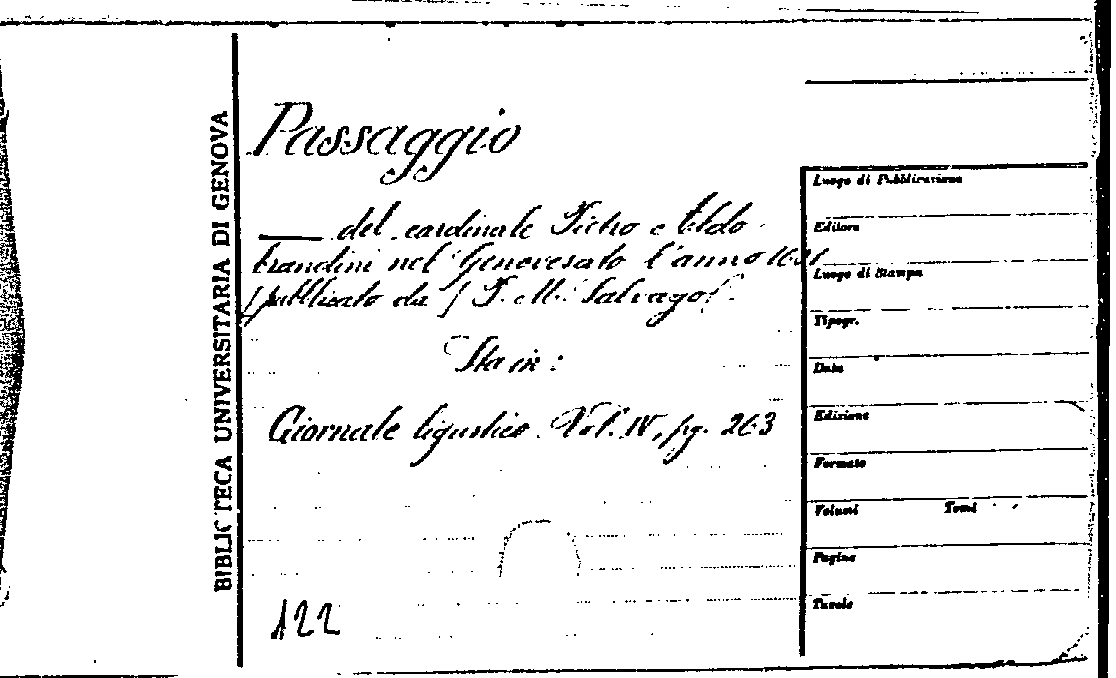 BIBLIOTECA UNIVERSITARIA DI GENOVA
Passaggio
— del cardinale Pietro Aldo
brandini nel Genovesato l'anno 1601
/publicato da / F. M. Salvago/.
Sta in:
Giornale ligustico. Vol. IV, pg. 263
122
Luogo di Pubblicazione
Editore
Luogo di Stampa
Tipogr.
Data
Edizione
Formato
Volumi Tomi
Pagine
Tavole